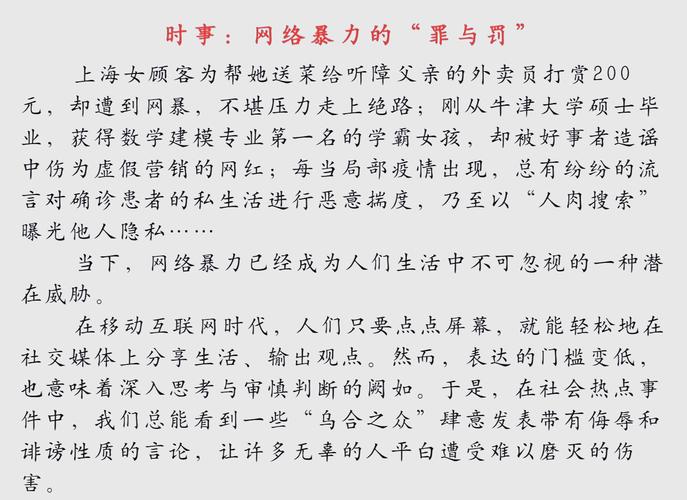 时事：网络暴力的“罪与罚”
上海女顾客为帮她送菜给听障父亲的外卖员打赏200
元，却遭到网暴，不堪压力走上绝路；刚从牛津大学硕士毕
业，获得数学建模专业第一名的学霸女孩，却被好事者造谣
中伤为虚假营销的网红；每当局部疫情出现，总有纷纷的流
言对确诊患者的私生活进行恶意揣度，乃至以“人肉搜索”
曝光他人隐私……
当下，网络暴力已经成为人们生活中不可忽视的一种潜
在威胁。
在移动互联网时代，人们只要点点屏幕，就能轻松地在
社交媒体上分享生活、输出观点。然而，表达的门槛变低，
也意味着深入思考与审慎判断的阙如。于是，在社会热点事
件中，我们总能看到一些“乌合之众”肆意发表带有侮辱和
诽谤性质的言论，让许多无辜的人平白遭受难以磨灭的伤
害。